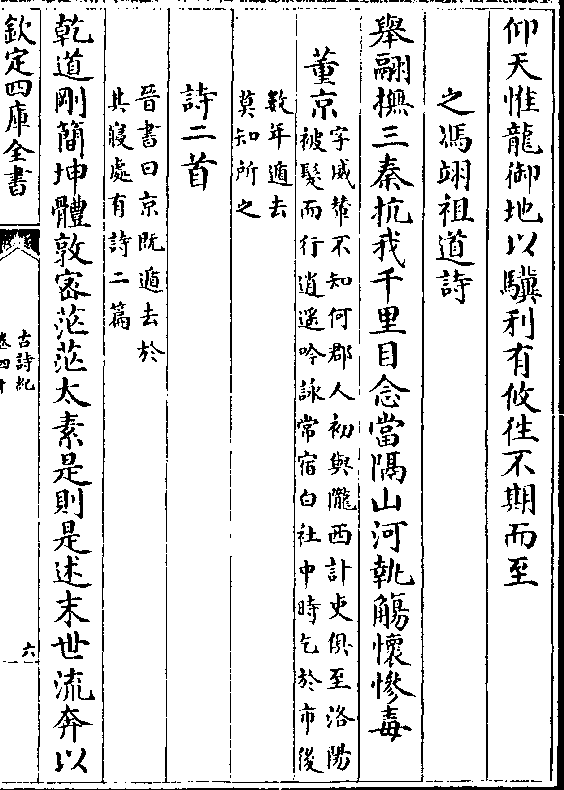 仰天惟龍御地以驥利有攸往不期而至
之馮翊祖道詩
舉翮撫三秦抗我千里目念當隔山河執觴懷慘毒
董京字威輦不知何郡人初與隴西計吏俱至洛陽
被髮而行逍遙吟詠常宿白社中時乞於市後
數年遁去
莫知所之
詩二首
晉書曰京既遁去於
其寢處有詩二篇
乾道剛簡坤體敦密茫茫太素是則是述末世流奔以
欽定四庫全書
古詩紀
卷四十
六